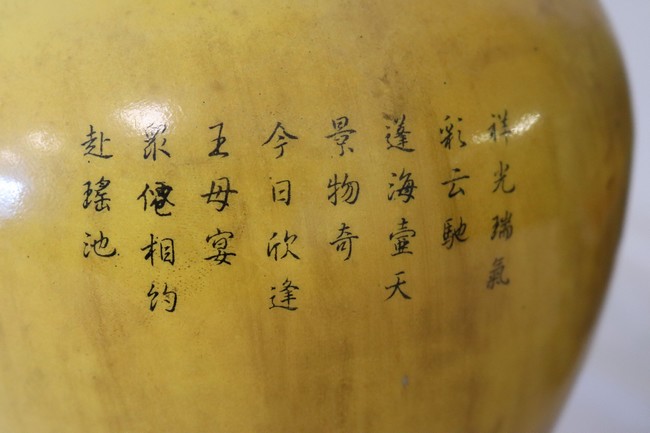 祥光瑞氣
彩云馳
蓬海壷天
景物奇
今日欣逢
王母宴
眾僊相約
赴瑤池